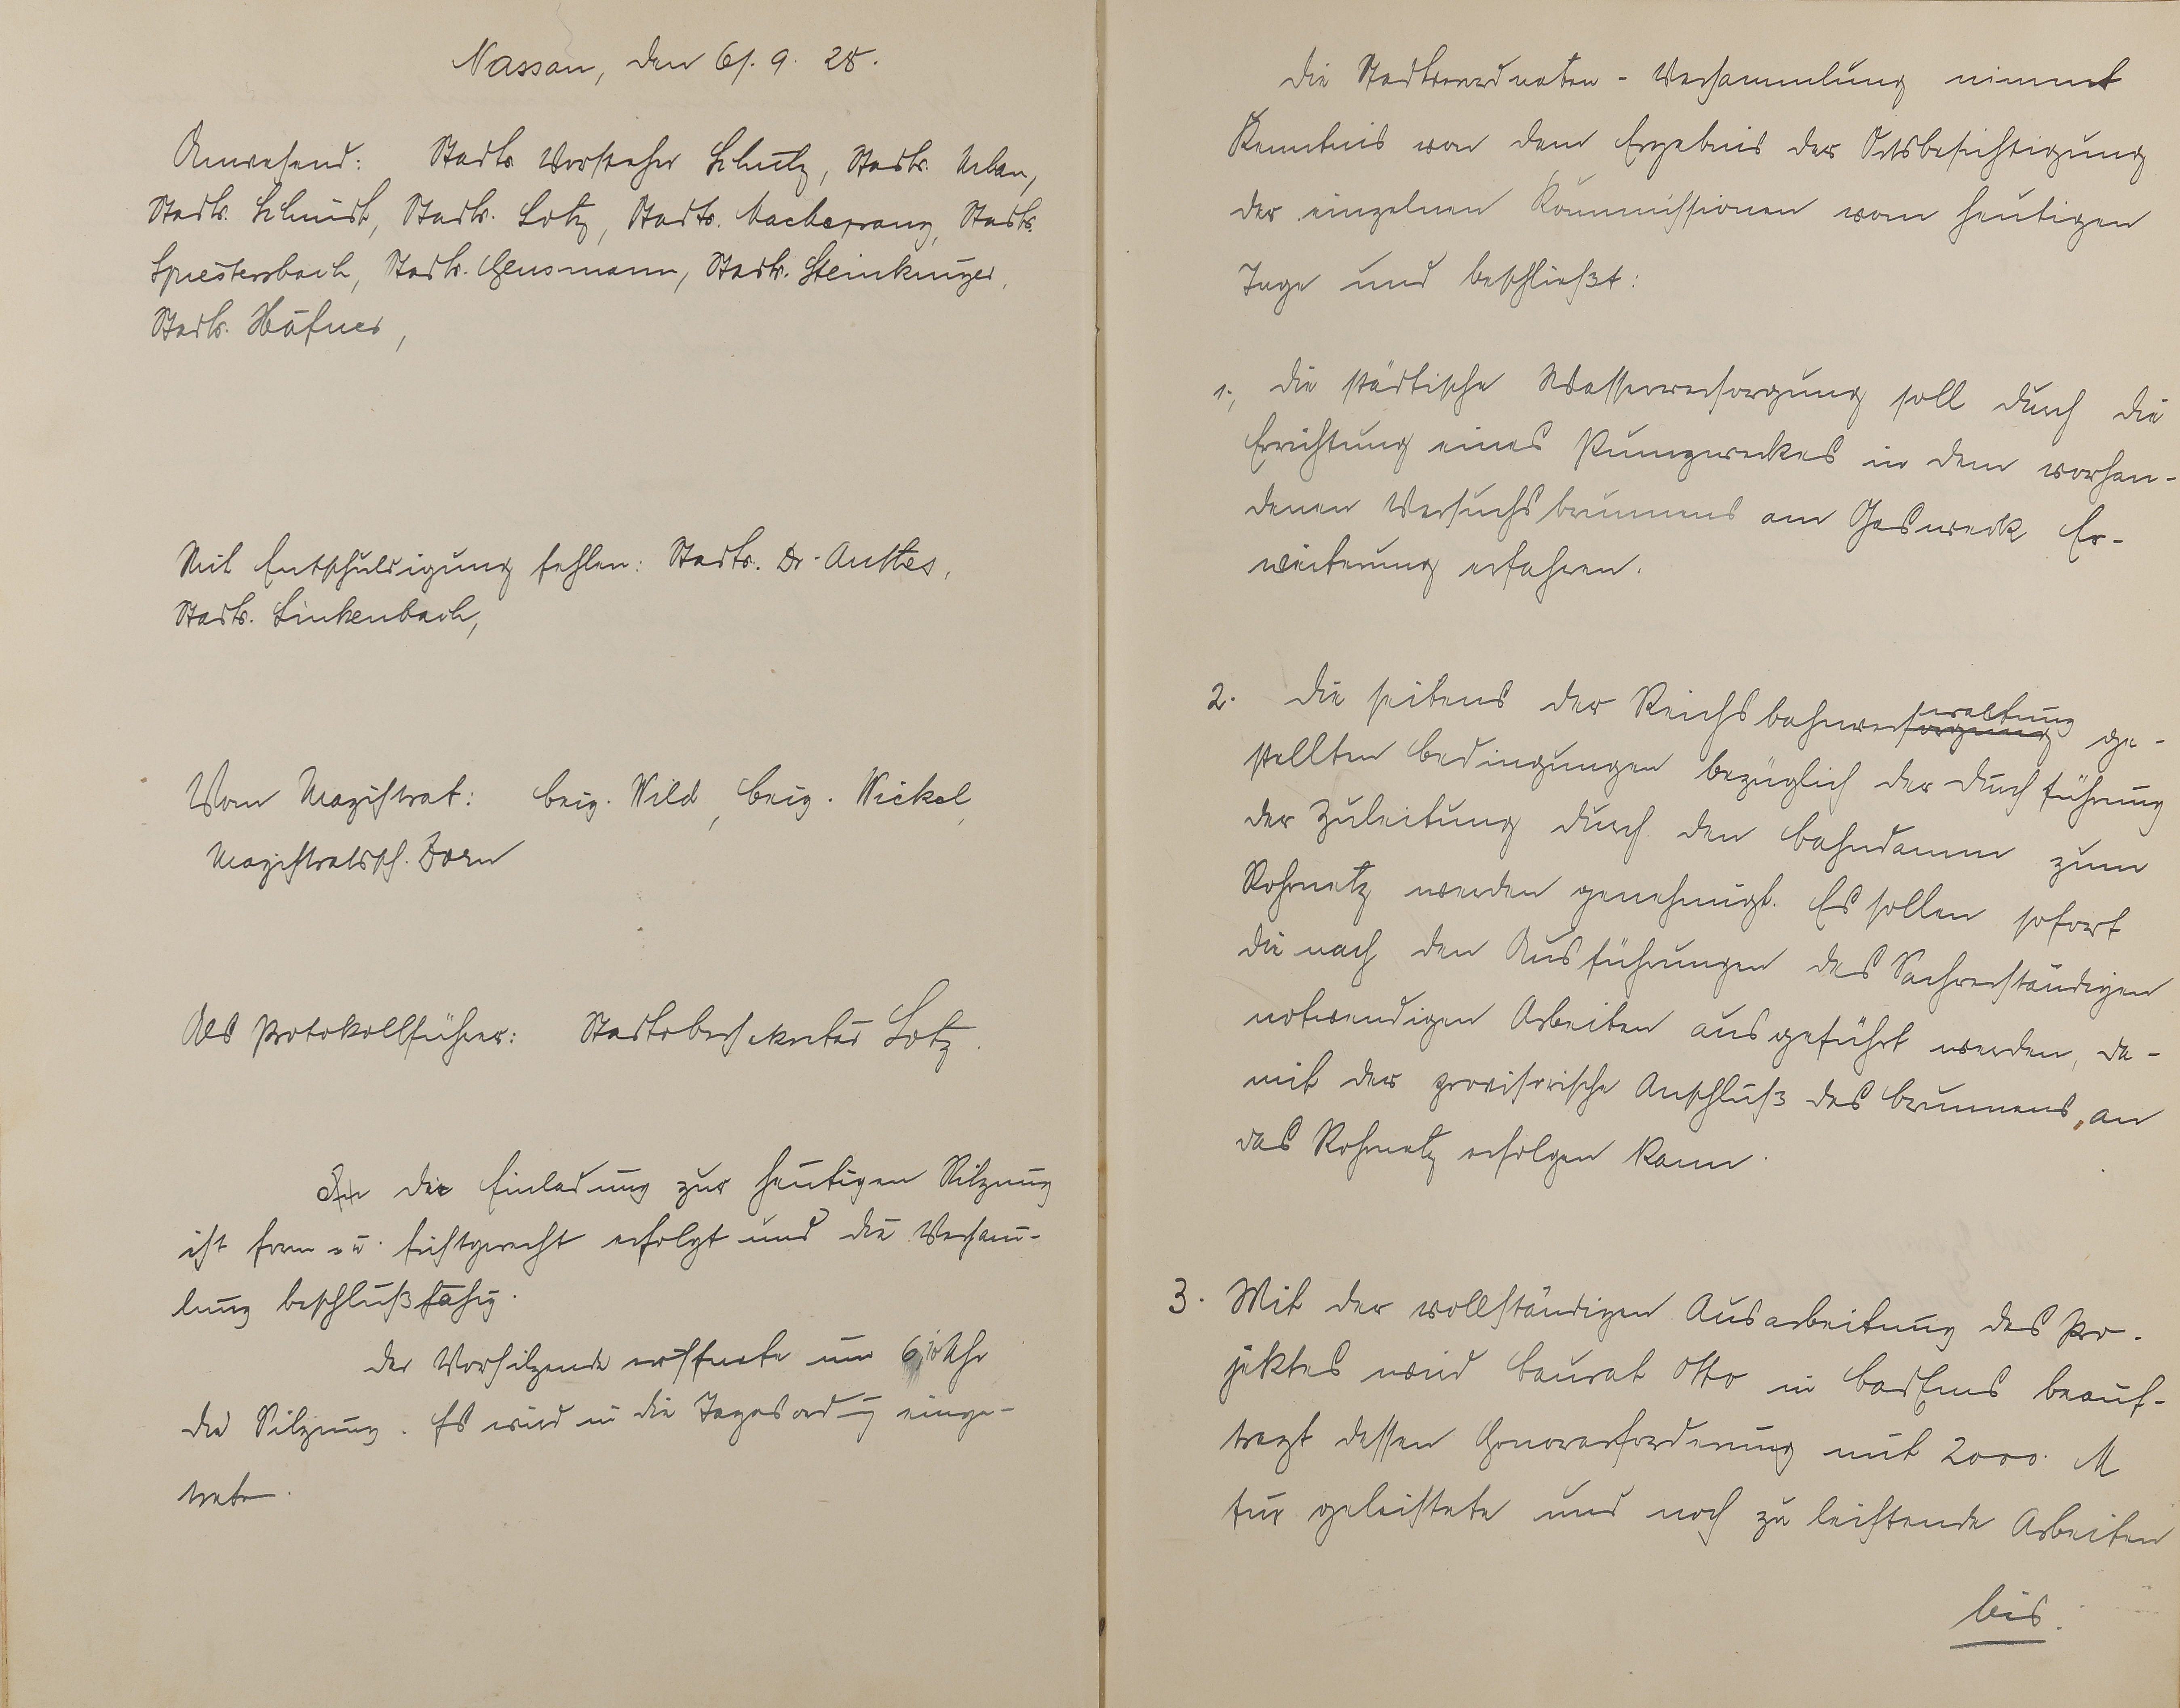 Nassau, den 6. 9. 28.
Anwesend: Stadtv. Vorsteher Schulz, Stadtv. Urban,
Stadtv. Schmidt, Stadtv. Lotz, Stadtv. Mackeprang, Stadtv.
Spriestersbach, Stadtv. Gensmann, Stadtv. Steinkrüger,
Stadtv. Häfner,
Mit Entschuldigung fehlen: Stadtv. Dr. Anthes,
Stadtv. Linkenbach,
Vom Magistrat: Beig. Wild, Beig. Nickel,
Magistratssch. Born
Als Protokollführer: Stadtobersekretär Lotz.
die Einladung zur heutigen Sitzung
ist form- u. fristgerecht erfolgt und die Versamm-
lung beschlußfähig.
Der Vorsitzende eröffnete um 6,10 Uhr
die Sitzung. Es wird in die Tagesordnung einge-
treten.
Die Stadtverordneten-Versammlung nimmt
Kenntnis von dem Ergebnis der Ortsbesichtigung
der einzelnen Kommissionen vom heutigen
Tage und beschließt:
1., Die städtische Wasserversorgung soll durch die
Errichtung eines Pumpwerkes in dem vorhan-
denen Versuchsbrunnens am Gaswerk Er-
weiterung erfahren.
2. Die seitens der Reichsbahnverwaltung ge-
stellten Bedingungen bezüglich der Durchführung
der Zuleitung durch den Bahndamm zum
Rohrnetz werden genehmigt. Es sollen sofort
die nach den Ausführungen des Sachverständigen
notwendigen Arbeiten ausgeführt werden, da-
mit der provisorische Anschluß des Brunnens, an
das Rohrnetz erfolgen kann.
3. Mit der vollständigen Ausarbeitung des Pro-
jektes wird Baurat Otto in Bad Ems beauf-
tragt dessen Honorarforderung mit 2000. M
für geleistete und noch zu leistende Arbeiten
bis.